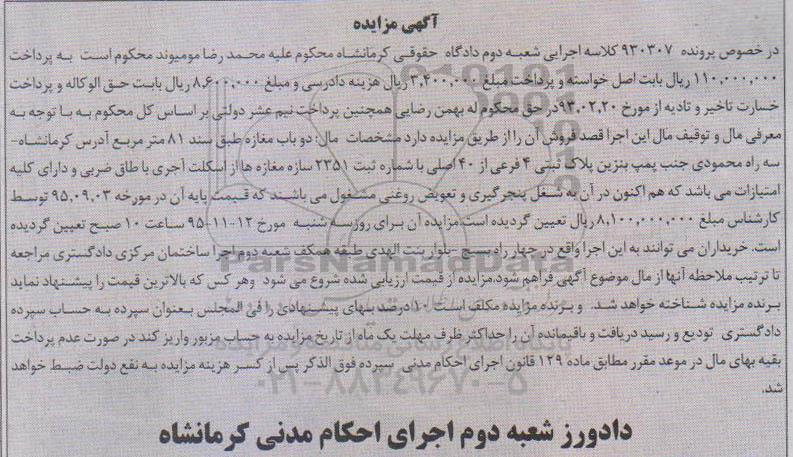 آگهی مزایده
در خصوص پرونده ۹۳۰۳۰۷ کلاسه اجرایی شعبه دوم دادگاه حقوقی کرمانشاه محکوم علیه محمد رضا مومیوند محکوم است به پرداخت
۱۱۰,۰۰۰,۰۰۰ ریال بابت اصل خواسته و پرداخت مبلغ ۳,۴۰۰,۰۰۰ ریال هزینه دادرسی و مبلغ ۸,۶۰۰,۰۰۰ ریال بابت حق الوکاله و پرداخت
خسارت تاخیر و تادیه از مورخ ۹۳,۰۲,۲۰ در حق محکوم له بهمن رضایی همچنین پرداخت نیم عشر دولتی بر اساس کل محکوم به با توجه به
معرفی مال و توقیف مال این اجرا قصد فروش آن را از طریق مزایده دارد مشخصات مال: دو باب مغازه طبق سند ۸۱ متر مربع آدرس کرمانشاه-
سه راه محمودی جنب پمپ بنزین پلاک ثبتی ۴ فرعی از ۴۰ اصلی با شماره ثبت ۲۳۵۱ سازه مغازه ها از اسکلت آجری با طاق ضربی و دارای کلیه
امتیازات می باشد که هم اکنون در آن به شغل پنچرگیری و تعویض روغنی مشغول می باشند که قیمت پایه آن در مورخه ۹۵,۰۹,۰۳ توسط
کارشناس مبلغ ۸,۱۰۰,۰۰۰,۰۰۰ ریال تعیین گردیده است مزایده آن برای روز سه شنبه مورخ ۱۲-۱۱-۹۵ ساعت ۱۰ صبح تعیین گردیده
است. خریداران می توانند به این اجرا واقع در چهار راه بسیج -بلوار بنت الهدی طبقه همکف شعبه دوم اجرا ساختمان مرکزی دادگستری مراجعه
تا ترتیب ملاحظه آنها از مال موضوع آگهی فراهم شود.مزایده از قیمت ارزیابی شده شروع می شود وهر کس که بالاترین قیمت را پیشنهاد نماید
برنده مزایده شناخته خواهد شد. و برنده مزایده مکلف است ۱۰ درصد بهای پیشنهادی را فی المجلس بعنوان سپرده به حساب سپرده
دادگستری تودیع و رسید دریافت و باقیمانده آن را حداکثر ظرف مهلت یک ماه از تاریخ مزایده به حساب مزبور واریز کند در صورت عدم پرداخت
بقیه بهای مال در موعد مقرر مطابق ماده ۱۲۹ قانون اجرای احکام مدنی سپرده فوق الذکر پس از کسر هزینه مزایده به نفع دولت ضبط خواهد
شد.
دادورز شعبه دوم اجرای احکام مدنی کرمانشاه
ParsNamadData
۰۲۱-۸۸۳۴۹۶۷۰-۵